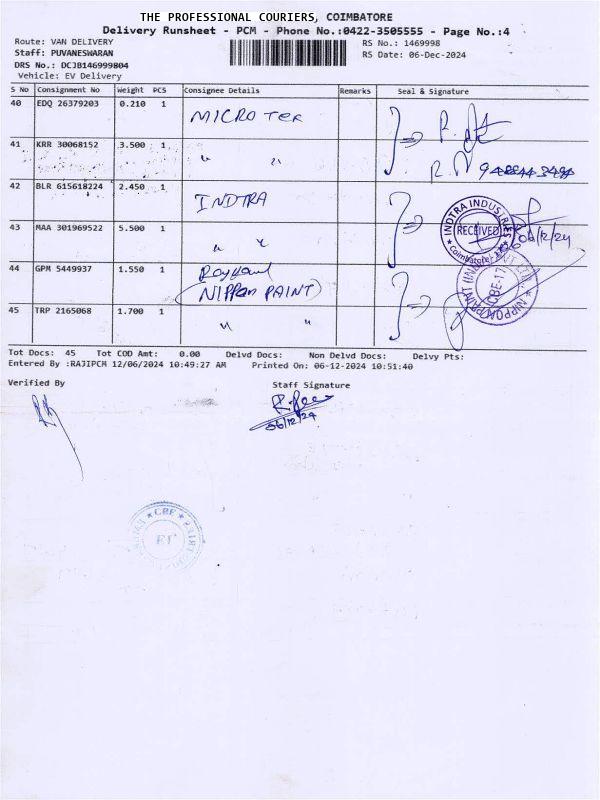 THE PROFESSIONAL COURIERS, COIMBATORE
Delivery Runsheet - PCM - Phone No.:0422-3505555 - Page No.:4
Route: VAN DELIVERY
RS No.: 1469998
Staff: PUVANESWARAN
RS Date: 06-Dec-2024
DRS No.: DCJB146999804
Vehicle: EV Delivery
S No Consignment No Weight PCS Consignee Details Remarks Seal & Signature
40 EDQ 26379203 0.210 1 MICRO TEK
41 KRR 30068152 3.500 1 " "
42 BLR 615618224 2.450 1 INDTRA
INDTRA INDUSTRIES
RECEIVED
Coimbatore
06/12/24
43 MAA 301969522 5.500 1 " "
44 GPM 5449937 1.550 1
(NIPPON PAINT)
CBE-17
45 TRP 2165068 1.700 1 " "
Tot Docs: 45 Tot COD Amt: 0.00 Delvd Docs: Non Delvd Docs: Delvy Pts:
Entered By :RAJIPCM 12/06/2024 10:49:27 AM Printed On: 06-12-2024 10:51:40
Verified By
Staff Signature
06/12/24
CBE